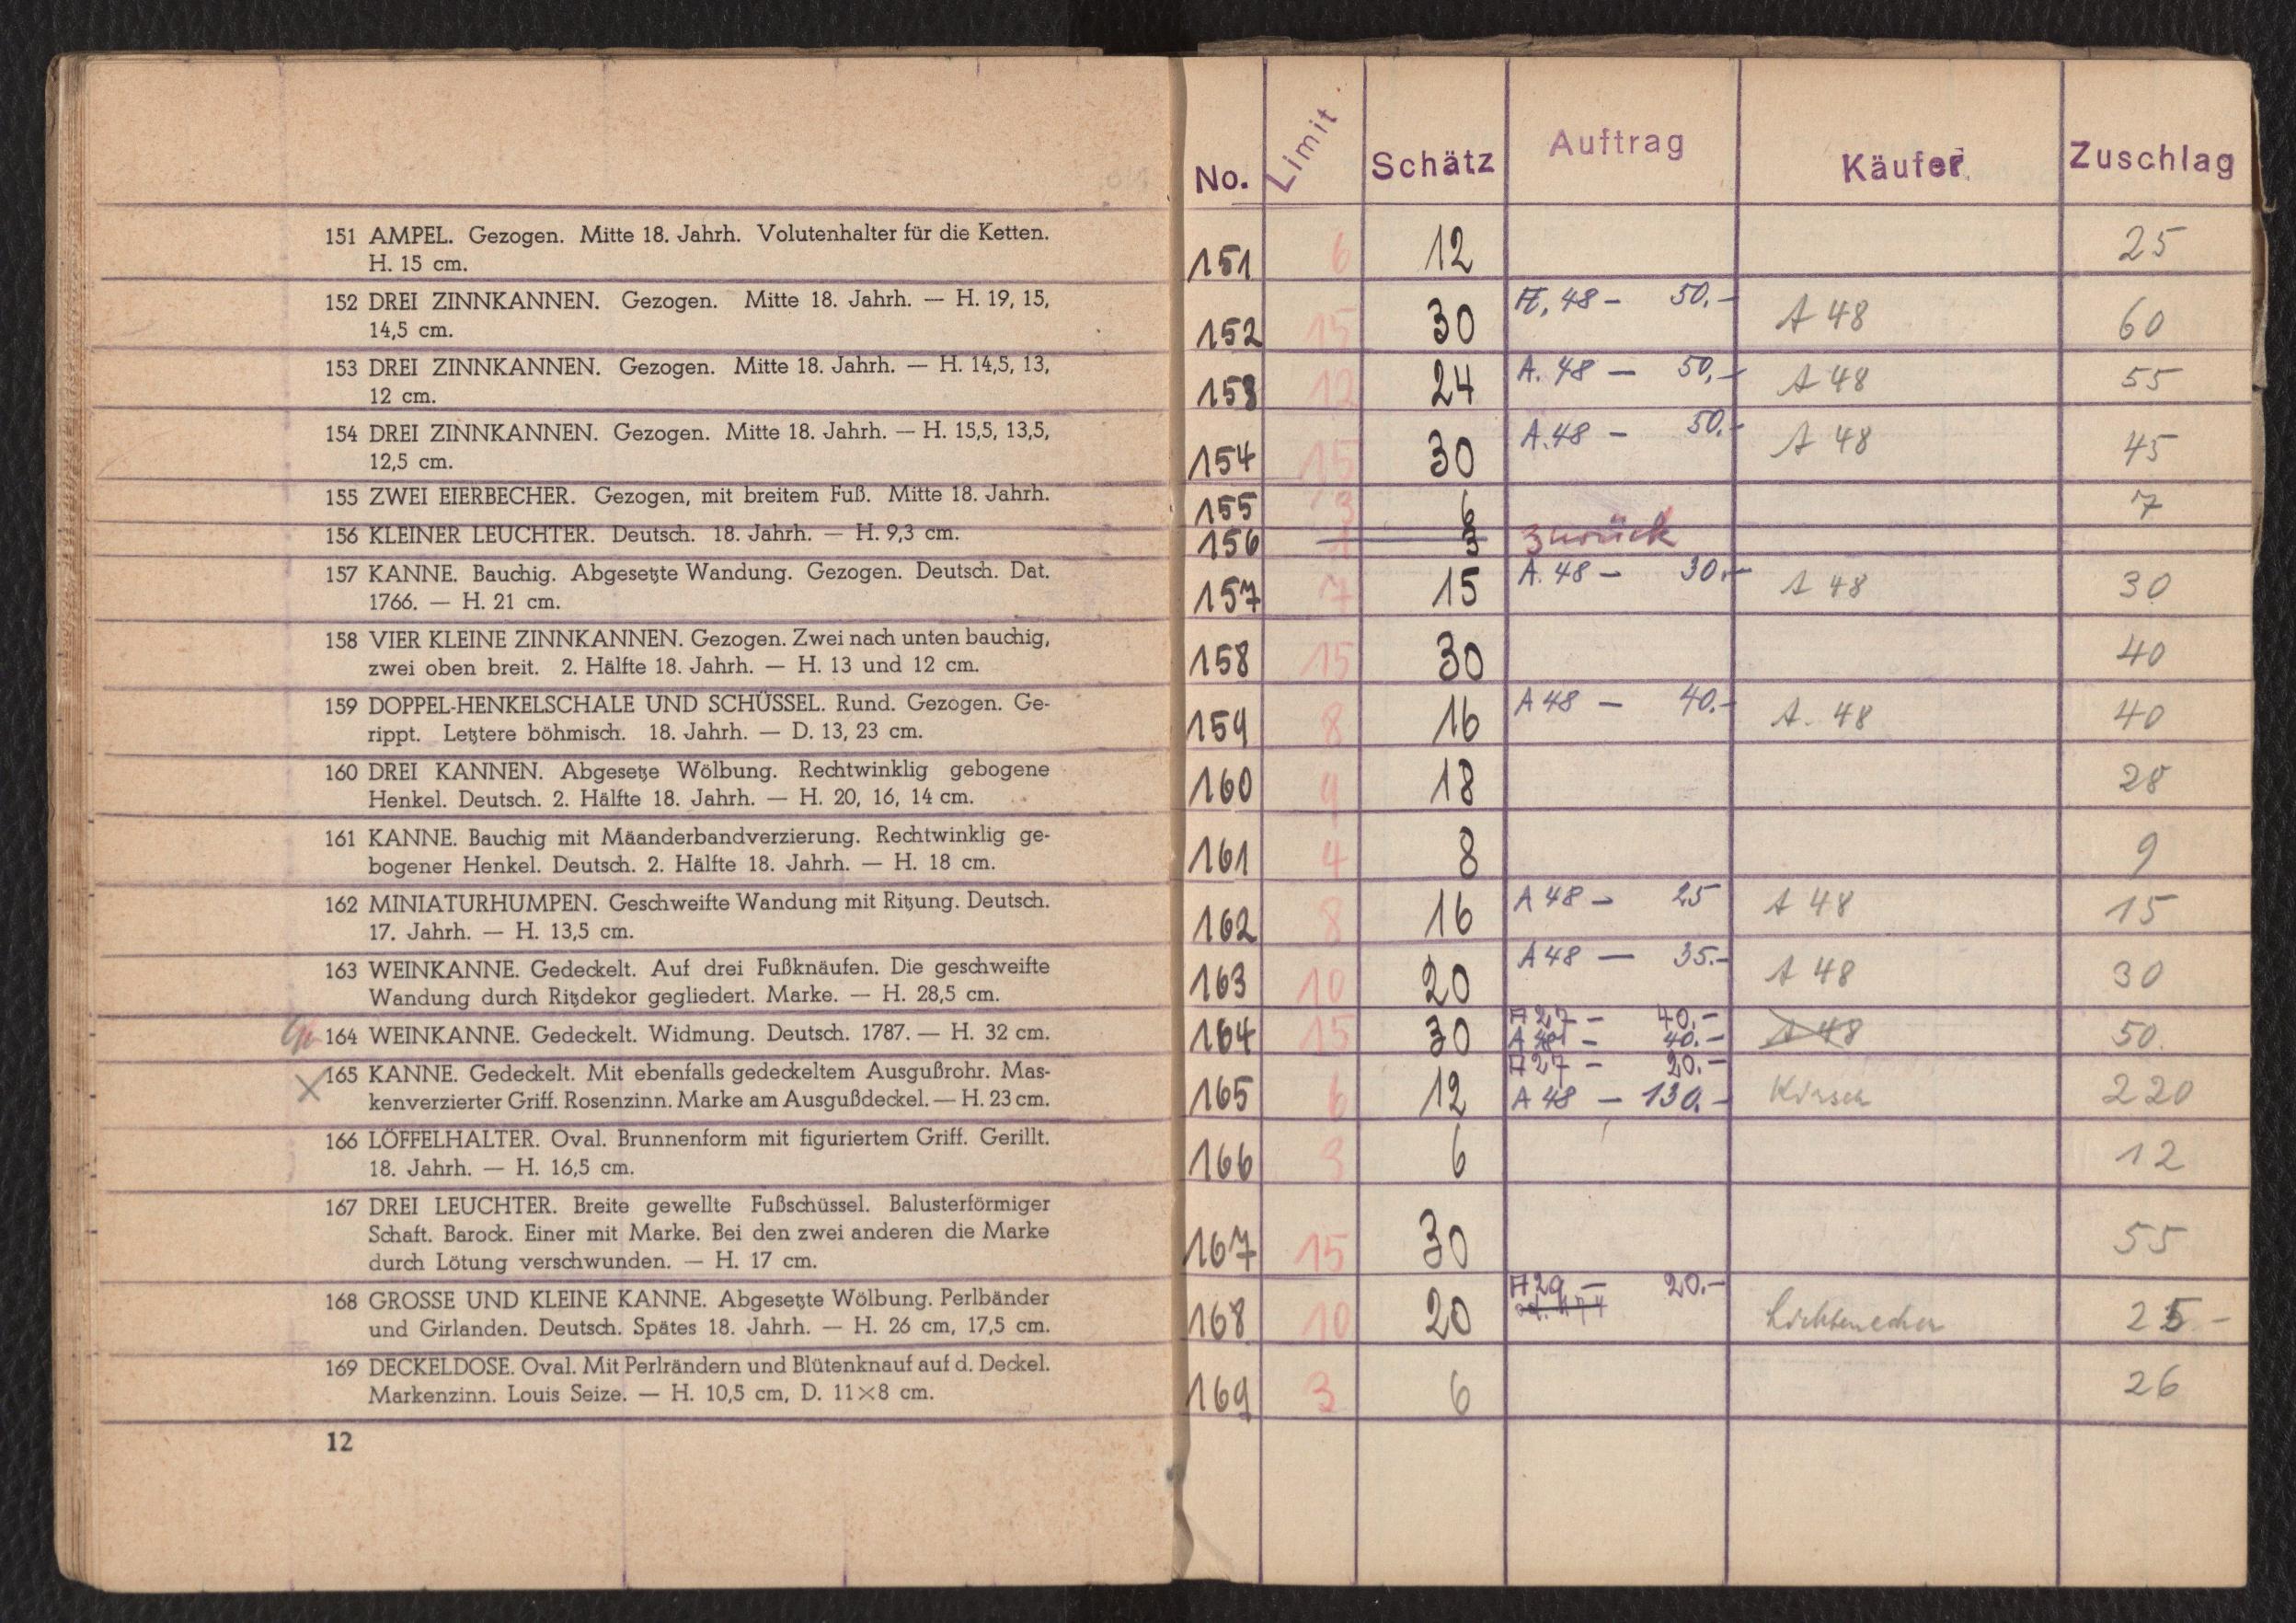 151 AMPEL. Gezogen. Mitte 18. Jahrh. Volutenhalter für die Ketten.
H. 15 cm.
152 DREI ZINNKANNEN. Gezogen. Mitte 18. Jahrh. — H. 19, 15,
14,5 cm.
153 DREI ZINNKANNEN. Gezogen. Mitte 18. Jahrh. — H. 14,5, 13,
12 cm.
154 DREI ZINNKANNEN. Gezogen. Mitte 18. Jahrh. — H. 15,5, 13,5,
12,5 cm.
155 ZWEI EIERBECHER. Gezogen, mit breitem Fuß. Mitte 18. Jahrh.
156 KLEINER LEUCHTER. Deutsch. 18. Jahrh. — H. 9,3 cm.
157 KANNE. Bauchig. Abgesetzte Wandung. Gezogen. Deutsch. Dat.
1766. — H. 21 cm.
158 VIER KLEINE ZINNKANNEN. Gezogen. Zwei nach unten bauchig,
zwei oben breit. 2. Hälfte 18. Jahrh. — H. 13 und 12 cm.
159 DOPPEL-HENKELSCHALE UND SCHÜSSEL. Rund. Gezogen. Ge-
rippt. Letztere böhmisch. 18. Jahrh. — D. 13, 23 cm.
160 DREI KANNEN. Abgesetze Wölbung. Rechtwinklig gebogene
Henkel. Deutsch. 2. Hälfte 18. Jahrh. — H. 20, 16, 14 cm.
161 KANNE. Bauchig mit Mäanderbandverzierung. Rechtwinklig ge-
bogener Henkel. Deutsch. 2. Hälfte 18. Jahrh. — H. 18 cm.
162 MINIATURHUMPEN. Geschweifte Wandung mit Ritzung. Deutsch.
17. Jahrh. — H. 13,5 cm.
163 WEINKANNE. Gedeckelt. Auf drei Fußknäufen. Die geschweifte
Wandung durch Ritzdekor gegliedert. Marke. — H. 28,5 cm.
164 WEINKANNE. Gedeckelt. Widmung. Deutsch. 1787. — H. 32 cm.
165 KANNE. Gedeckelt. Mit ebenfalls gedeckeltem Ausgußrohr. Mas-
kenverzierter Griff. Rosenzinn. Marke am Ausgußdeckel. — H. 23 cm.
166 LÖFFELHALTER. Oval. Brunnenform mit figuriertem Griff. Gerillt.
18. Jahrh. — H. 16,5 cm.
167 DREI LEUCHTER. Breite gewellte Fußschüssel. Balusterförmiger
Schaft. Barock. Einer mit Marke. Bei den zwei anderen die Marke
durch Lötung verschwunden. — H. 17 cm.
168 GROSSE UND KLEINE KANNE. Abgesetzte Wölbung. Perlbänder
und Girlanden. Deutsch. Spätes 18. Jahrh. — H. 26 cm, 17,5 cm.
169 DECKELDOSE. Oval. Mit Perlrändern und Blütenknauf auf d. Deckel.
Markenzinn. Louis Seize. — H. 10,5 cm, D. 11×8 cm.
12
No. Limit Schätz Auftrag Käufer Zuschlag
151 6 12 25
152 15 30 A. 48 – 50.– A 48 60
153 12 24 A. 48 – 50.– A 48 55
154 15 30 A. 48 – 50.– A 48 45
155 3 6 7
156 1 3 zurück
157 7 15 A. 48 – 30.– A 48 30
158 15 30 40
159 8 16 A 48 – 40.– A. 48 40
160 9 18 28
161 4 8 9
162 8 16 A 48 – 25 A 48 15
163 10 20 A 48 – 35.– A 48 30
164 15 30 A 27 – 40.– A 48 50
A 48 – 40.–
165 6 12 A 27 – 20.– Kirsch 220
A 48 – 130.–
166 3 6 12
167 15 30 55
168 10 20 A 29 – 20.– 25 –
169 3 6 26